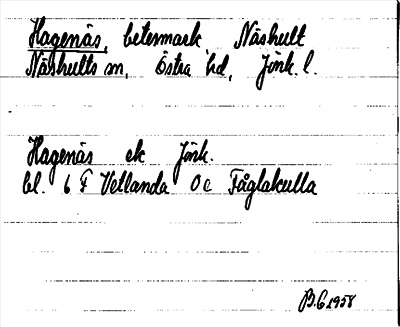 Hagenäs, betesmark Näshult
Näshults sn, Östra hd, Jönk. l.
Hagenäs ek Jönk.
bl. 6 F Vetlanda 0 c Fåglakulla
B.G 1958